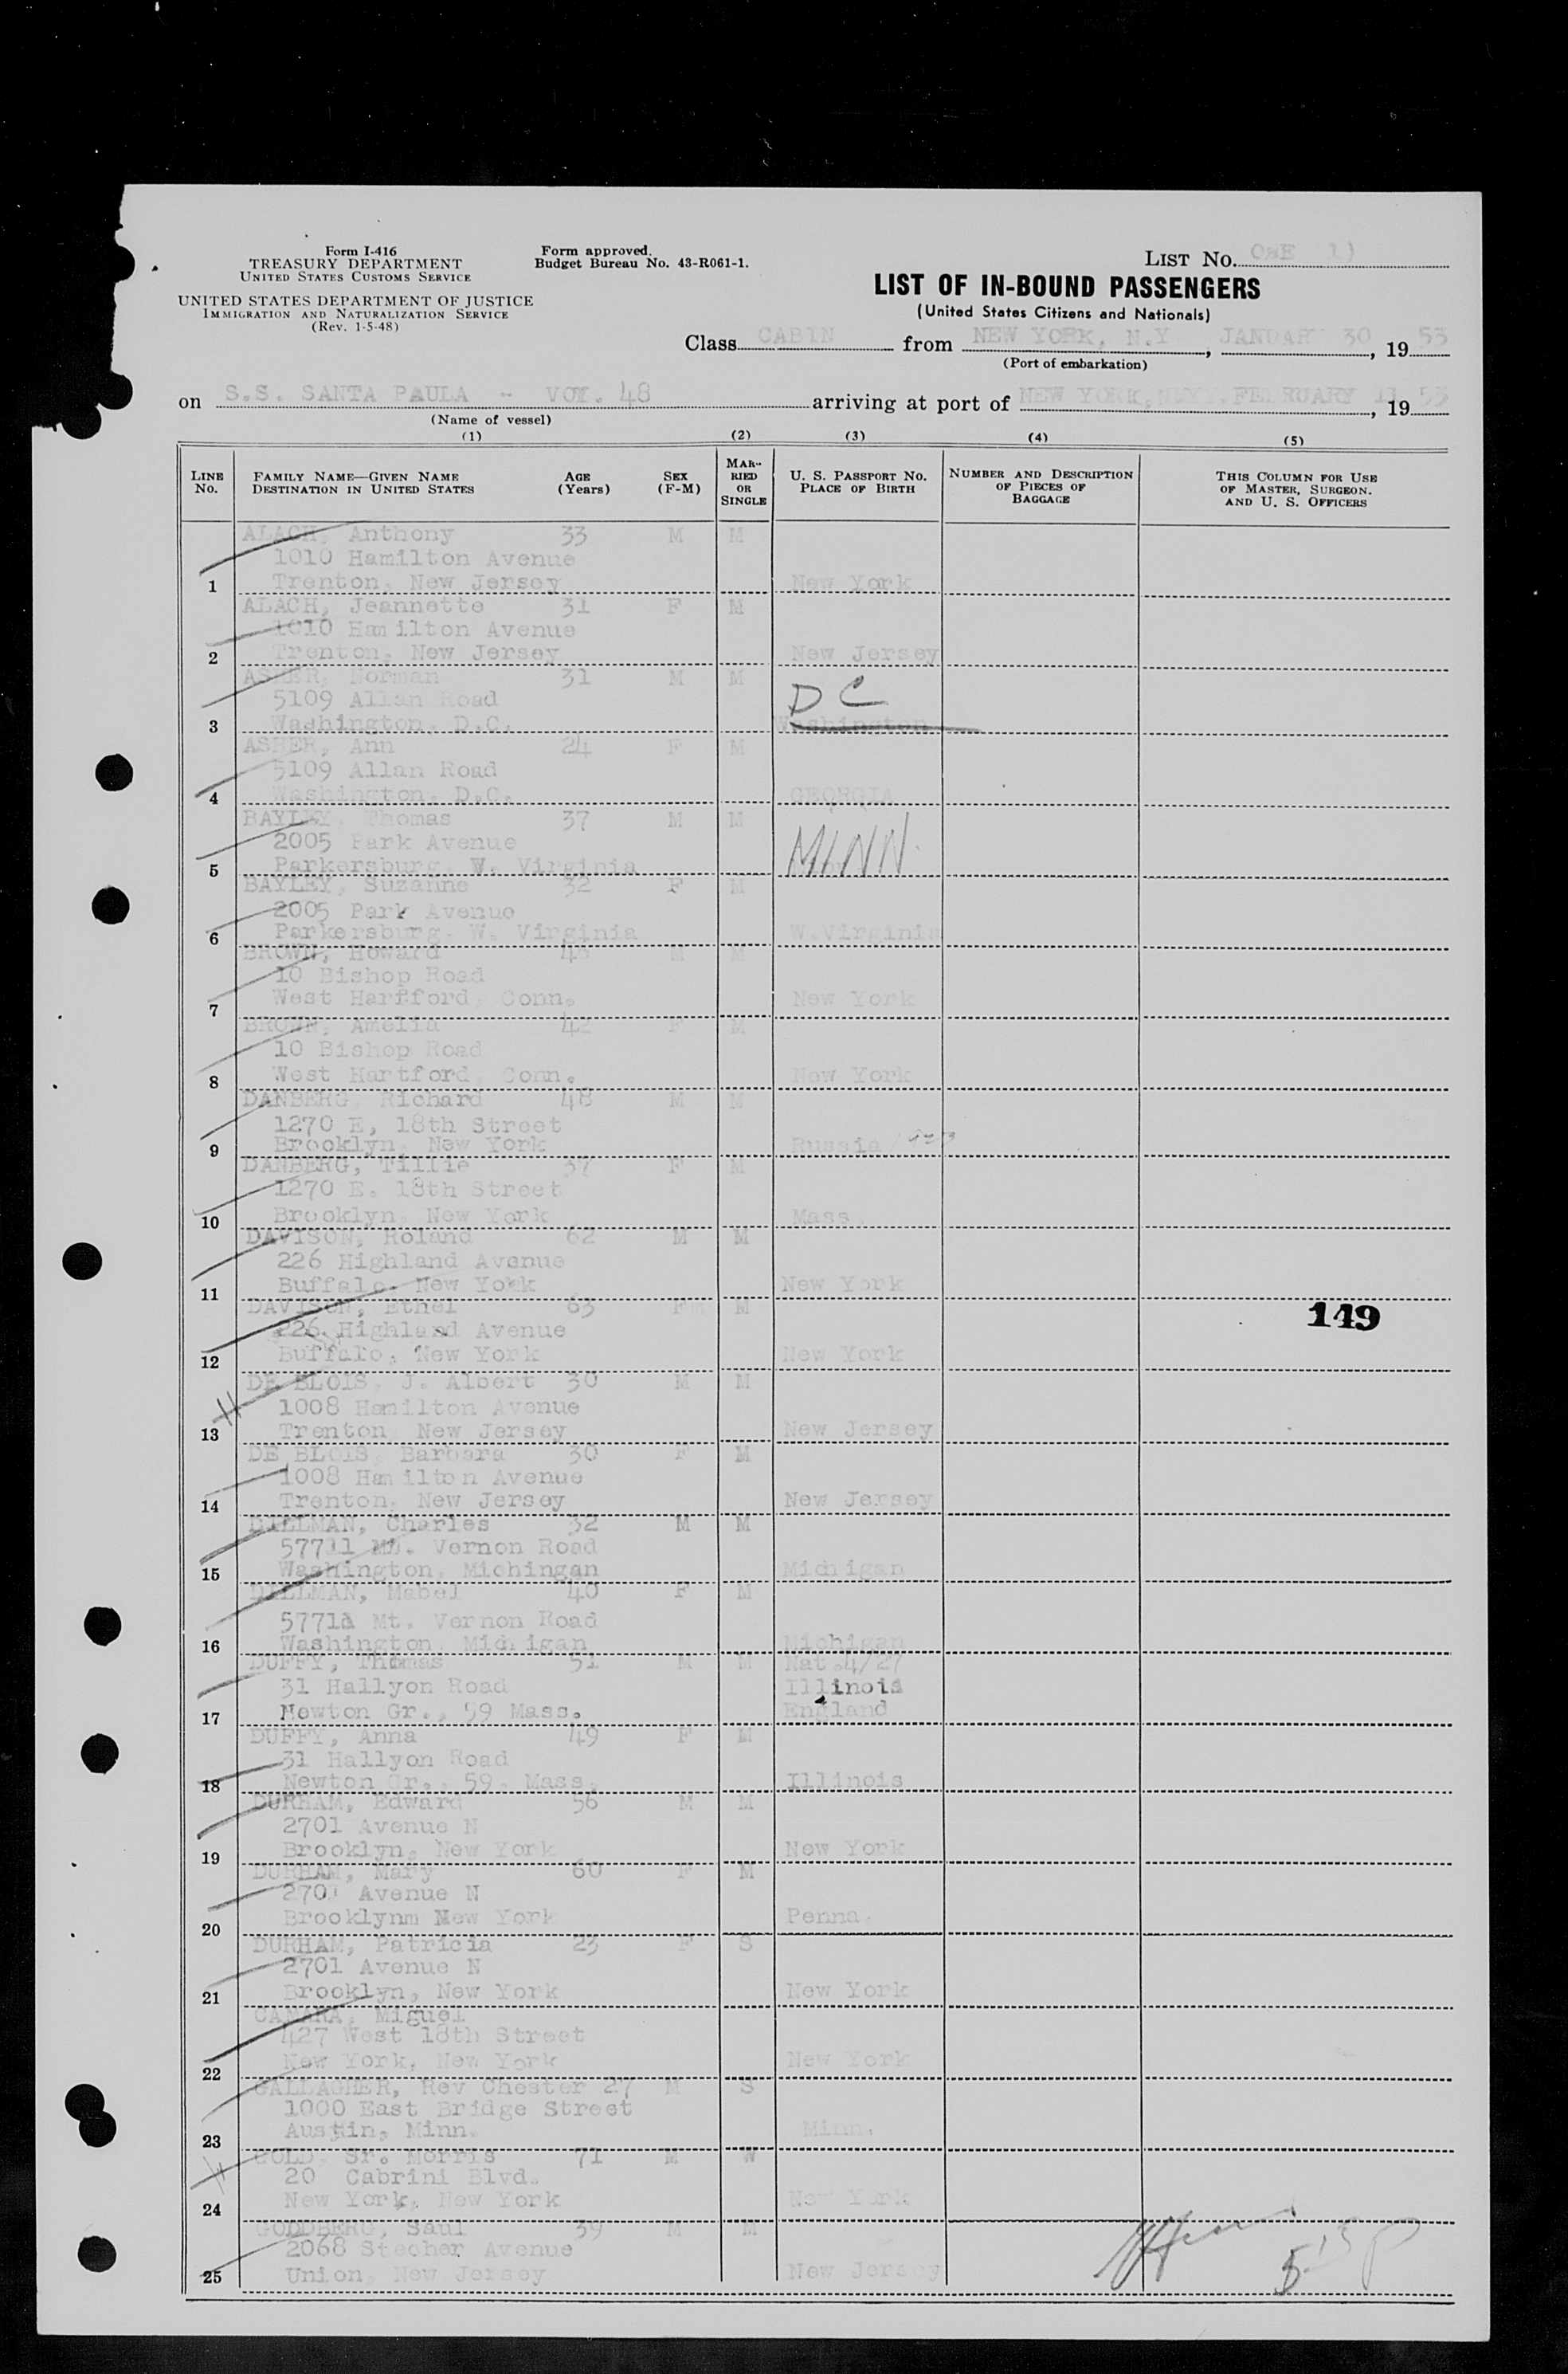 Form I-416
TREASURY DEPARTMENT
UNITED STATES CUSTOMS SERVICE
UNITED STATES DEPARTMENT OF JUSTICE
IMMIGRATION AND NATURALIZATION SERVICE
(Rev. 1-5-48)
Form approved.
Budget Bureau No. 43-R061-1.
LIST No. ONE 1)
LIST OF IN-BOUND PASSENGERS
(United States Citizens and Nationals)
Class CABIN from NEW YORK, N.Y, JANUARY 30, 19 53
(Port of embarkation)
on S.S. SANTA PAULA - VOY. 48 arriving at port of NEW YORK, N.Y. FEBRUARY 11, 19 53
(Name of vessel)
(1) (2) (3) (4) (5)
LINE No.
FAMILY NAME—GIVEN NAME
DESTINATION IN UNITED STATES
AGE
(Years)
SEX
(F-M)
MAR-
RIED
OR
SINGLE
U. S. PASSPORT NO.
PLACE OF BIRTH
NUMBER AND DESCRIPTION
OF PIECES OF
BAGGAGE
THIS COLUMN FOR USE
OF MASTER, SURGEON.
AND U. S. OFFICERS
ALACH, Anthony 33 M M
1010 Hamilton Avenue
1 Trenton, New Jersey New York
ALACH, Jeannette 31 F M
1010 Hamilton Avenue
2 Trenton, New Jersey New Jersey
ASHER, Norman 31 M M
5109 Allan Road DC
3 Washington, D.C. Washington
ASHER, Ann 24 F M
5109 Allan Road
4 Washington, D.C. GEORGIA
BAYLEY, Thomas 37 M M
2005 Park Avenue MINN.
5 Parkersburg, W. Virginia
BAYLEY, Suzanne 32 F M
2005 Park Avenue
6 Parkersburg, W. Virginia W.Virginia
BROWN, Howard 48 M M
10 Bishop Road
7 West Hartford, Conn. New York
BROWN, Amelia 42 F M
10 Bishop Road
8 West Hartford, Conn. New York
DANBERG, Richard 48 M M
1270 E, 18th Street
9 Brooklyn, New York Russia
DANBERG, Tillie 37 F M
1270 E. 18th Street
10 Brooklyn, New York Mass.
DAVISON, Roland 62 M M
226 Highland Avenue
11 Buffalo, New York New York
DAVISON, Ethel 63 F M
226 Highland Avenue 149
12 Buffalo, New York New York
DE BLOIS, J. Albert 30 M M
1008 Hamilton Avenue
13 Trenton, New Jersey New Jersey
DE BLOIS, Barbara 30 F M
1008 Hamilton Avenue
14 Trenton, New Jersey New Jersey
DILLMAN, Charles 32 M M
57711 Mt. Vernon Road
15 Washington, Michingan Michigan
DILLMAN, Mabel 40 F M
57711 Mt. Vernon Road
16 Washington, Michigan Michigan
DUFFY, Thomas 51 M M Nat.4/27
31 Hallyon Road Illinois
17 Newton Gr., 59 Mass. England
DUFFY, Anna 49 F M
31 Hallyon Road
18 Newton Gr., 59, Mass. Illinois
DURHAM, Edward 56 M M
2701 Avenue N
19 Brooklyn, New York New York
DURHAM, Mary 60 F M
2701 Avenue N
20 Brooklynm New York Penna.
DURHAM, Patricia 23 F S
2701 Avenue N
21 Brooklyn, New York New York
CAMARA, Miguel
427 West 18th Street
22 New York, New York New York
GALLAGHER, Rev Chester 27 M S
1000 East Bridge Street
23 Austin, Minn. Minn.
GOLD, Sr. Morris 71 M W
20 Cabrini Blvd.
24 New York, New York New York
GODDBERG, Saul 39 M M
2068 Stecher Avenue
25 Union, New Jersey New Jersey